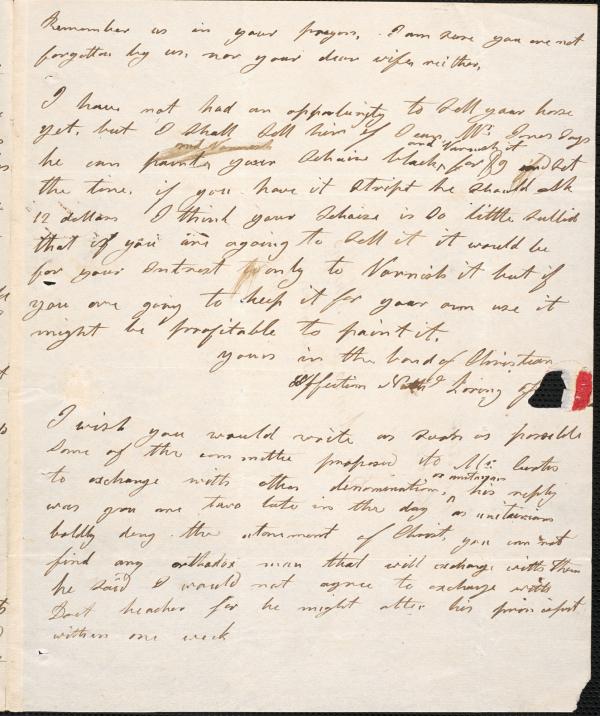 Remember us in your prayers. I am sure you are not
forgotten by us, nor your dear wife neither.
I have not had an opportunity to sell your horse
yet, but I shall sell him if I can, Mr. Jones says
and Varnish it
he can paint your Schaise black, for $9 and set
the tone, if you have it stript he should ask
12 dollars I think your Schaise is so little sullid
that if you are agoing to sell it it would be
for your intrest only to Varnish it but if
you are going to keep it for your own use it
might be profitable to paint it.
yours in the band of Christian
affection Loring
I wish you would write as soon as possible
some of the committe proposed to Mr.
as unitarian
to exchange with other denominations, his reply
was you are two late in the day as unitarians
boldly deny the atonment of Christ, you can not
find any orthodox man that will exchange with them
he said I would not agree to exchange with
for he might alter his
within one week